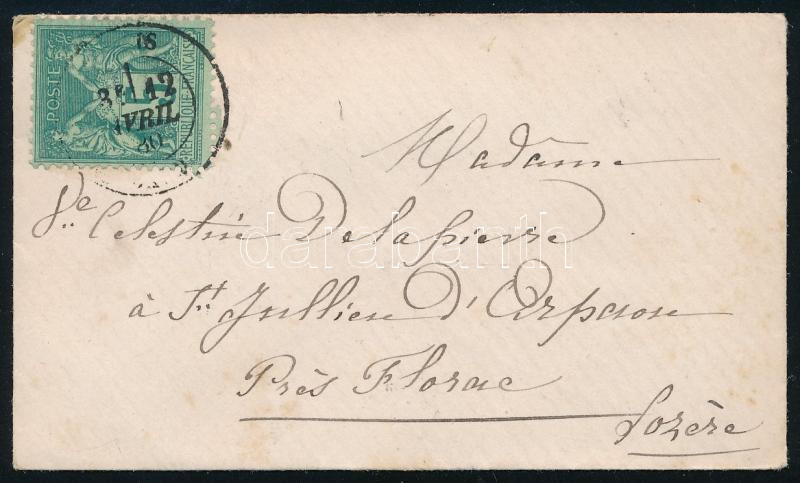 POSTE
REPUBLIQUE FRANÇAISE
5
12
AVRIL
80
Madame
Ve Celestine Delapierre
darabanth
à St. Jullien d'Arpaon
Près Florac
Lozère